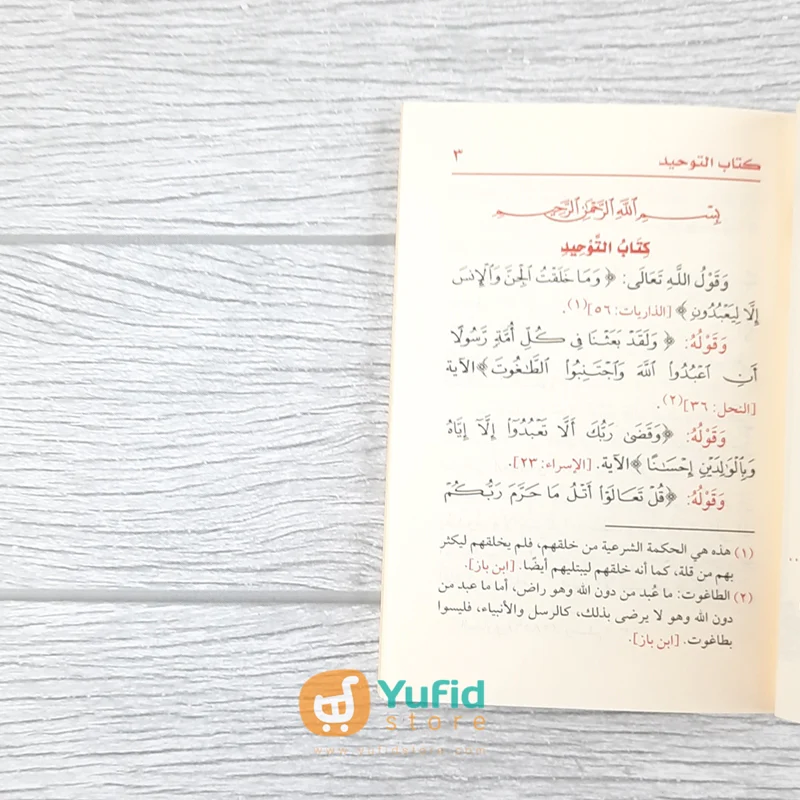 كتاب التوحيد ٣
بِسْمِ ٱللَّهِ ٱلرَّحْمَٰنِ ٱلرَّحِيمِ
كِتَابُ التَّوْحِيدِ
وَقَوْلُ اللَّهِ تَعَالَى: ﴿وَمَا خَلَقْتُ ٱلْجِنَّ وَٱلْإِنسَ
إِلَّا لِيَعْبُدُونِ﴾ [الذاريات: ٥٦](١).
وَقَوْلُهُ: ﴿وَلَقَدْ بَعَثْنَا فِي كُلِّ أُمَّةٍ رَّسُولًا
أَنِ ٱعْبُدُوا۟ ٱللَّهَ وَٱجْتَنِبُوا۟ ٱلطَّٰغُوتَ﴾ الآية
[النحل: ٣٦](٢).
وَقَوْلُهُ: ﴿وَقَضَىٰ رَبُّكَ أَلَّا تَعْبُدُوٓا۟ إِلَّآ إِيَّاهُ
وَبِٱلْوَٰلِدَيْنِ إِحْسَٰنًا﴾ الآية. [الإسراء: ٢٣].
وَقَوْلُهُ: ﴿قُلْ تَعَالَوْا۟ أَتْلُ مَا حَرَّمَ رَبُّكُمْ
(١) هذه هي الحكمة الشرعية من خلقهم، فلم يخلقهم ليكثر
بهم من قلة، كما أنه خلقهم ليبتليهم أيضًا. [ابن باز].
(٢) الطاغوت: ما عُبد من دون الله وهو راض، أما ما عبد من
دون الله وهو لا يرضى بذلك، كالرسل والأنبياء، فليسوا
بطاغوت. [ابن باز].
Yufid
store